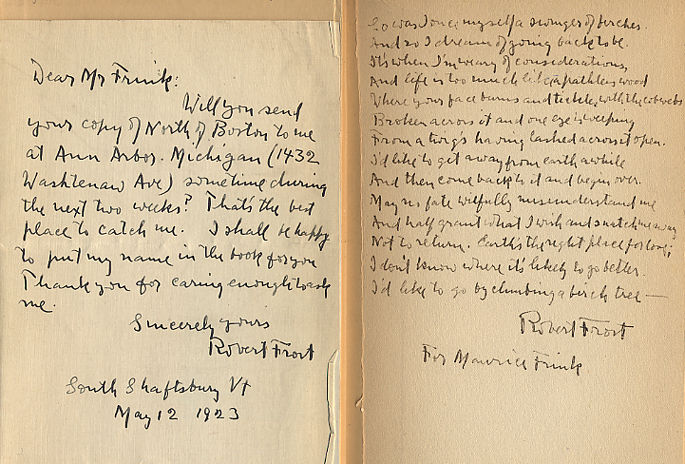 Dear Mr Frink:
Will you send
your copy of North of Boston to me
at Ann Arbor. Michigan (1432
Washtenaw Ave) sometime during
the next two weeks? That's the best
place to catch me. I shall be happy
to put my name in the book for you
Thank you for caring enough to ask
me.
Sincerely yours
Robert Frost
South Shaftsbury Vt
May 12 1923
So was I once myself a swinger of birches.
And so I dream of going back to be.
It's when I'm weary of considerations,
And life is too much like a pathless wood
Where your face burns and tickles with the cobwebs
Broken across it and one eye is weeping
From a twig's having lashed across it open.
I'd like to get away from earth awhile
And then come back to it and begin over.
May no fate wilfully misunderstand me
And half grant what I wish and snatch me away
Not to return. Earth's the right place for love:
I don't know where it's likely to go better.
I'd like to go by climbing a birch tree —
Robert Frost
For Maurice Frink